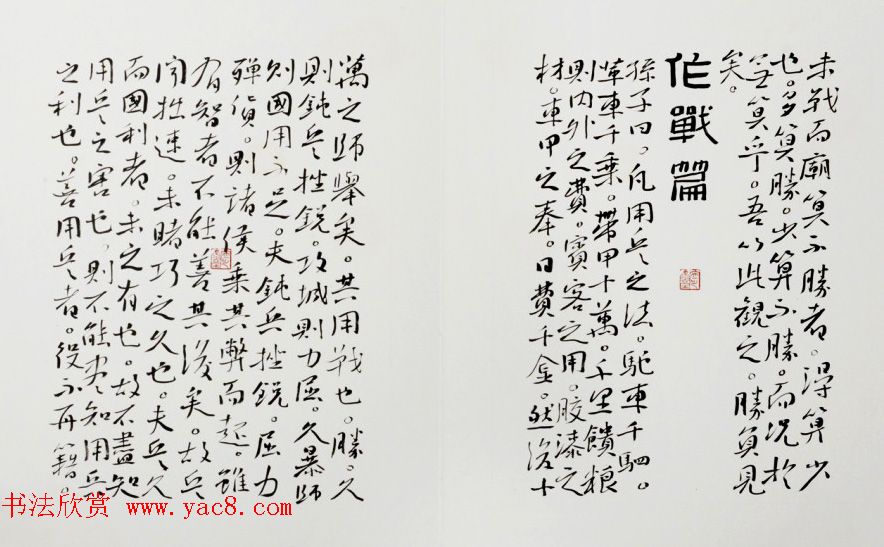 未戰而廟算不勝者。得算少
也。多算勝。少算不勝。而况於
無算乎。吾以此觀之。勝負見
矣。
作戰篇
孫子曰。凡用兵之法。馳車千駟。
革車千乘。帶甲十萬。千里饋糧
則内外之費。賓客之用。膠漆之
材。車甲之奉。日費千金。然後十
萬之師舉矣。其用戰也。勝。久
則鈍兵挫銳。攻城則力屈。久暴師
則國用不足。夫鈍兵挫銳。屈力
殫貨。則諸侯乘其弊而起。雖
有智者不能善其後矣。故兵
聞拙速。未睹巧之久也。夫兵久
而國利者。未之有也。故不盡知
用兵之害也。則不能尽知用兵
之利也。善用兵者。役不再籍。
书法欣赏 www.yac8.com